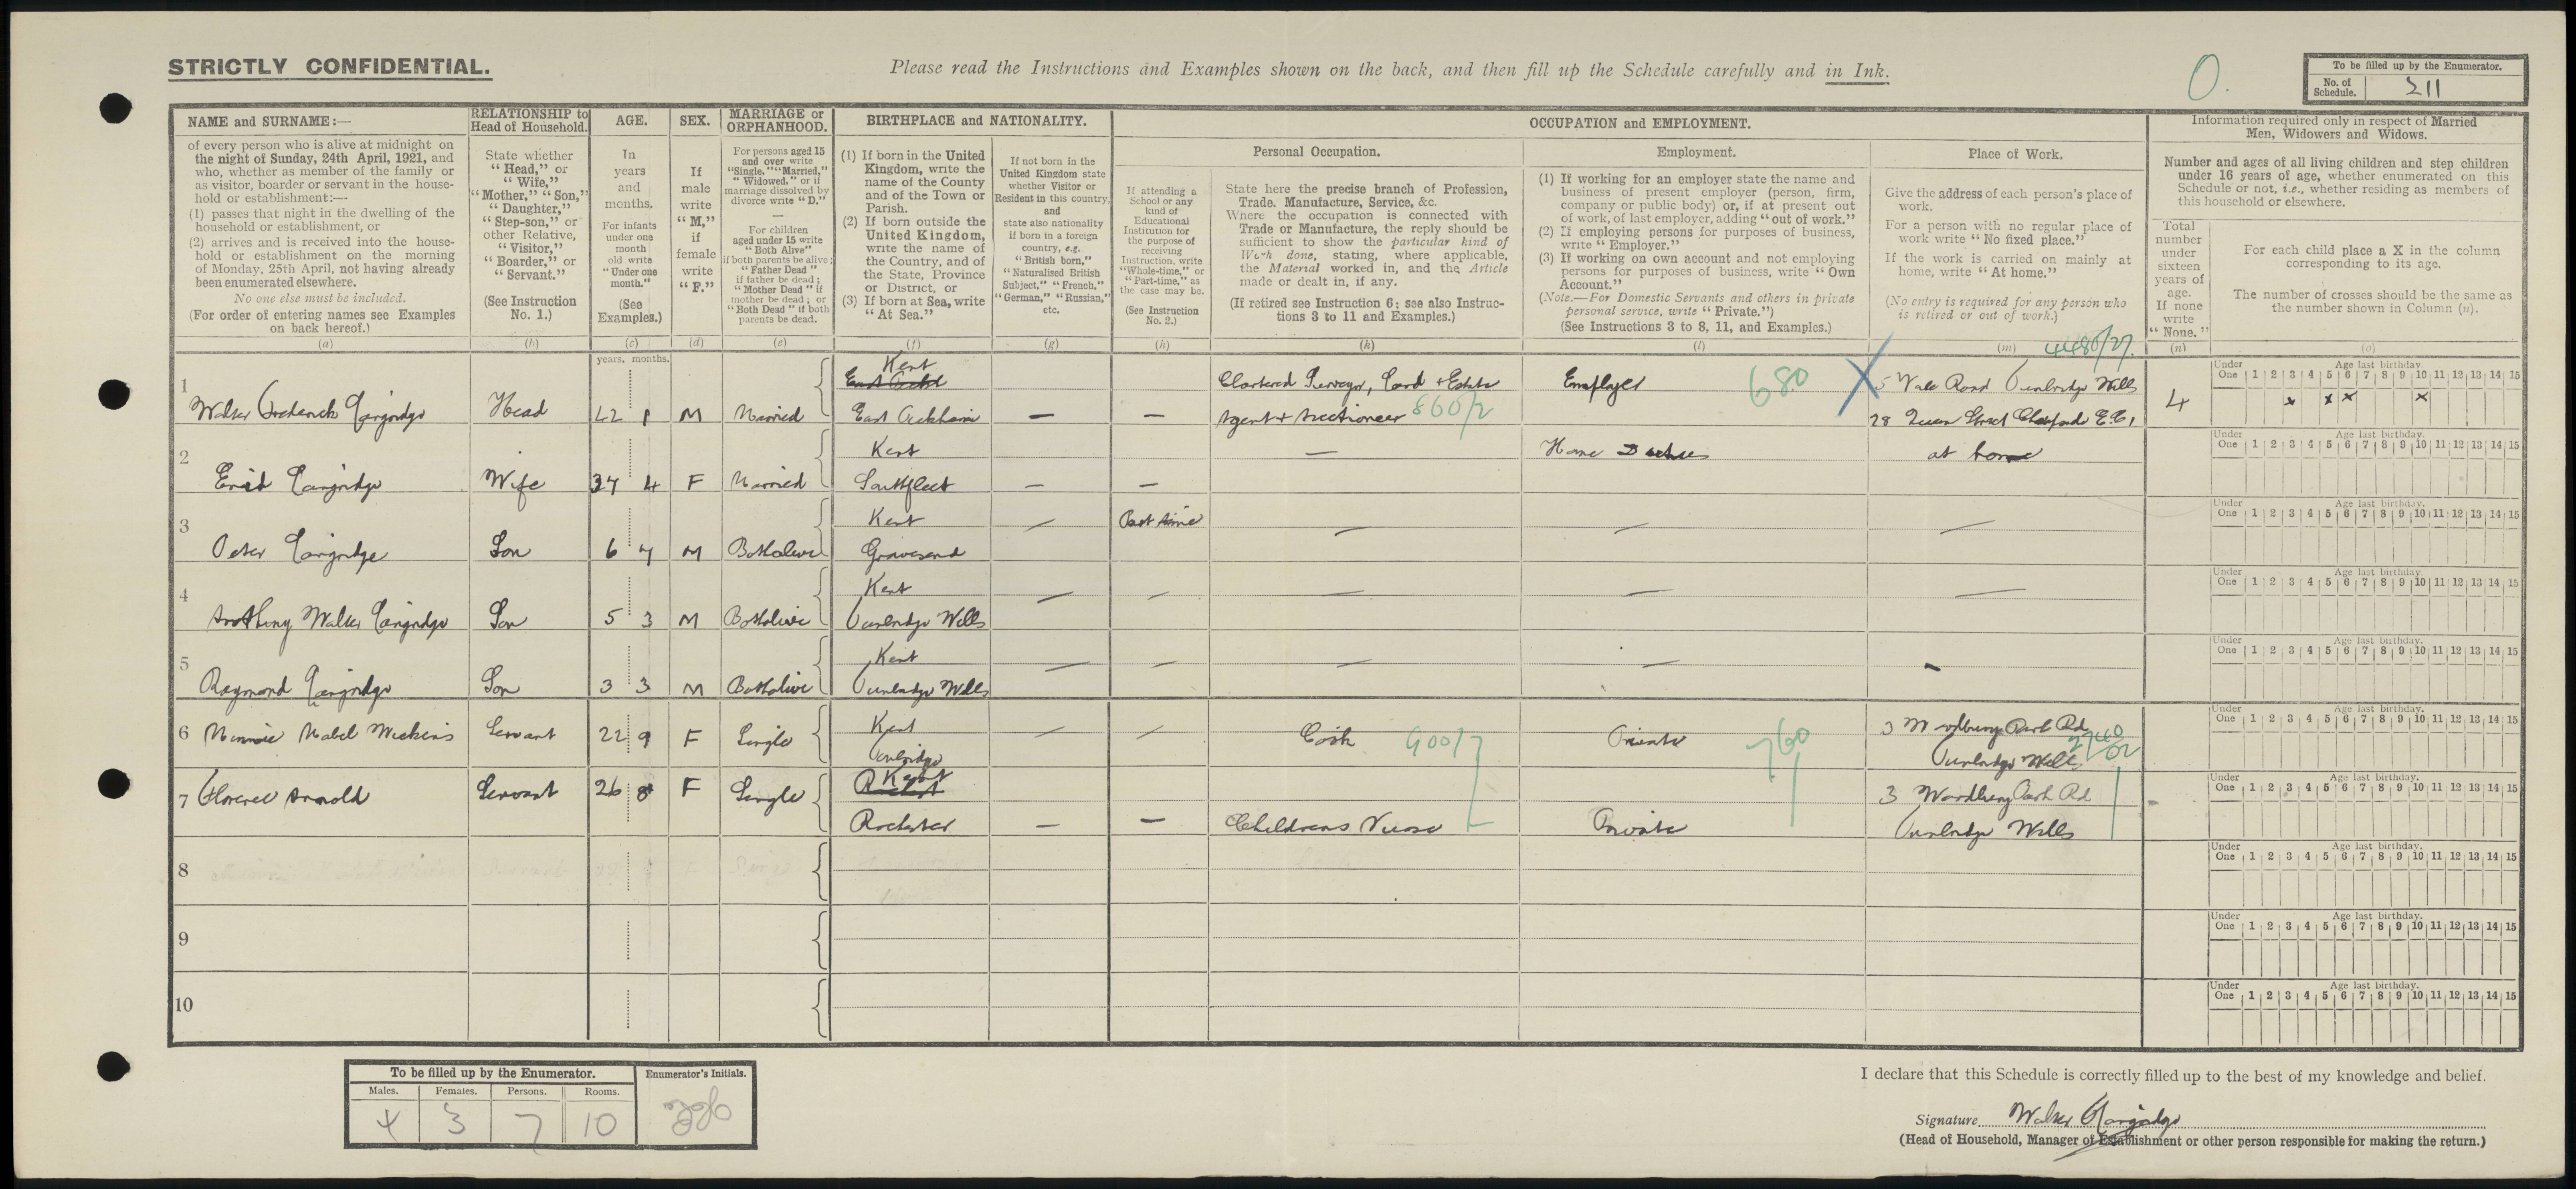 STRICTLY CONFIDENTIAL.
Please read the Instructions and Examples shown on the back, and then fill up the Schedule carefully and in Ink.
O.
To be filled up by the Enumerator.
No. of Schedule.
211
NAME and SURNAME:—
of every person who is alive at midnight on
the night of Sunday, 24th April, 1921, and
who, whether as member of the family or
as visitor, boarder or servant in the house-
hold or establishment:—
(1) passes that night in the dwelling of the
household or establishment, or
(2) arrives and is received into the house-
hold or establishment on the morning
of Monday, 25th April, not having already
been enumerated elsewhere.
No one else must be included.
(For order of entering names see Examples
on back hereof.)
(a)
RELATIONSHIP to
Head of Household.
State whether
"Head," or
"Wife,"
"Mother," "Son,"
"Daughter,"
"Step-son," or
other Relative,
"Visitor,"
"Boarder," or
"Servant."
(See Instruction
No. 1.)
(b)
AGE.
In
years
and
months.
For infants
under one
month
old write
"Under one
month."
(See
Examples.)
(c)
SEX.
If
male
write
"M,"
if
female
write
"F."
(d)
MARRIAGE or
ORPHANHOOD.
For persons aged 15
and over write
"Single," "Married,"
"Widowed," or if
marriage dissolved by
divorce write "D."
—
For children
aged under 15 write
"Both Alive"
if both parents be alive;
"Father Dead"
if father be dead;
"Mother Dead" if
mother be dead; or
"Both Dead" if both
parents be dead.
(e)
BIRTHPLACE and NATIONALITY.
(1) If born in the United
Kingdom, write the
name of the County
and of the Town or
Parish.
(2) If born outside the
United Kingdom,
write the name of
the Country, and of
the State, Province
or District, or
(3) If born at Sea, write
"At Sea."
(f)
If not born in the
United Kingdom state
whether Visitor or
Resident in this country,
and
state also nationality
if born in a foreign
country, e.g.
"British born,"
"Naturalised British
Subject," "French,"
"German," "Russian,"
etc.
(g)
OCCUPATION and EMPLOYMENT.
Personal Occupation.
If attending a
School or any
kind of
Educational
Institution for
the purpose of
receiving
Instruction, write
"Whole-time," or
"Part-time," as
the case may be.
(See Instruction
No. 2.)
(h)
State here the precise branch of Profession,
Trade, Manufacture, Service, &c.
Where the occupation is connected with
Trade or Manufacture, the reply should be
sufficient to show the particular kind of
Work done, stating, where applicable,
the Material worked in, and the Article
made or dealt in, if any.
(If retired see Instruction 6; see also Instruc-
tions 3 to 11 and Examples.)
(k)
Employment.
(1) If working for an employer state the name and
business of present employer (person, firm,
company or public body) or, if at present out
of work, of last employer, adding "out of work."
(2) If employing persons for purposes of business,
write "Employer."
(3) If working on own account and not employing
persons for purposes of business, write "Own
Account."
(Note.—For Domestic Servants and others in private
personal service, write "Private.")
(See Instructions 3 to 8, 11, and Examples.)
(l)
Place of Work.
Give the address of each person's place of
work.
For a person with no regular place of
work write "No fixed place."
If the work is carried on mainly at
home, write "At home."
(No entry is required for any person who
is retired or out of work.)
(m)
4480/27
Information required only in respect of Married
Men, Widowers and Widows.
Number and ages of all living children and step children
under 16 years of age, whether enumerated on this
Schedule or not, i.e., whether residing as members of
this household or elsewhere.
Total
number
under
sixteen
years of
age.
If none
write
"None."
(n)
For each child place a X in the column
corresponding to its age.
The number of crosses should be the same as
the number shown in Column (n).
(o)
years. months.
1 Walter Frederick Langridge Head 42 1 M Married Kent East Peckham — — Chartered Surveyor, Land + Estate Agent + Auctioneer 860/2 Employer 680 X 5 Vale Road Tunbridge Wells
28 Queen Street Cheapside E.C.1 4
Under One 1 2 3 4 5 6 7 8 9 10 11 12 13 14 15 Age last birthday.
x x x x
2 Enid Langridge Wife 37 4 F Married Kent Southfleet — — — Home Duties at home
Under One 1 2 3 4 5 6 7 8 9 10 11 12 13 14 15 Age last birthday.
3 Peter Langridge Son 6 7 M Both alive Kent Gravesend — Part time — — —
Under One 1 2 3 4 5 6 7 8 9 10 11 12 13 14 15 Age last birthday.
4 Anthony Walter Langridge Son 5 3 M Both alive Kent Tunbridge Wells — — — — —
Under One 1 2 3 4 5 6 7 8 9 10 11 12 13 14 15 Age last birthday.
5 Raymond Langridge Son 3 3 M Both alive Kent Tunbridge Wells — — — — —
Under One 1 2 3 4 5 6 7 8 9 10 11 12 13 14 15 Age last birthday.
6 Minnie Mabel Wickens Servant 22 9 F Single Kent Tonbridge — — Cook 900/7 Private 760 3 Woodbury Park Rd Tunbridge Wells 2740/02
Under One 1 2 3 4 5 6 7 8 9 10 11 12 13 14 15 Age last birthday.
7 Florence Arnold Servant 26 8 F Single Kent Rochester — — Childrens Nurse Private 3 Woodbury Park Rd Tunbridge Wells
Under One 1 2 3 4 5 6 7 8 9 10 11 12 13 14 15 Age last birthday.
8
Under One 1 2 3 4 5 6 7 8 9 10 11 12 13 14 15 Age last birthday.
9
Under One 1 2 3 4 5 6 7 8 9 10 11 12 13 14 15 Age last birthday.
10
Under One 1 2 3 4 5 6 7 8 9 10 11 12 13 14 15 Age last birthday.
To be filled up by the Enumerator.
Males. Females. Persons. Rooms.
4 3 7 10
Enumerator's Initials.
I declare that this Schedule is correctly filled up to the best of my knowledge and belief.
Signature Walter Langridge
(Head of Household, Manager of Establishment or other person responsible for making the return.)